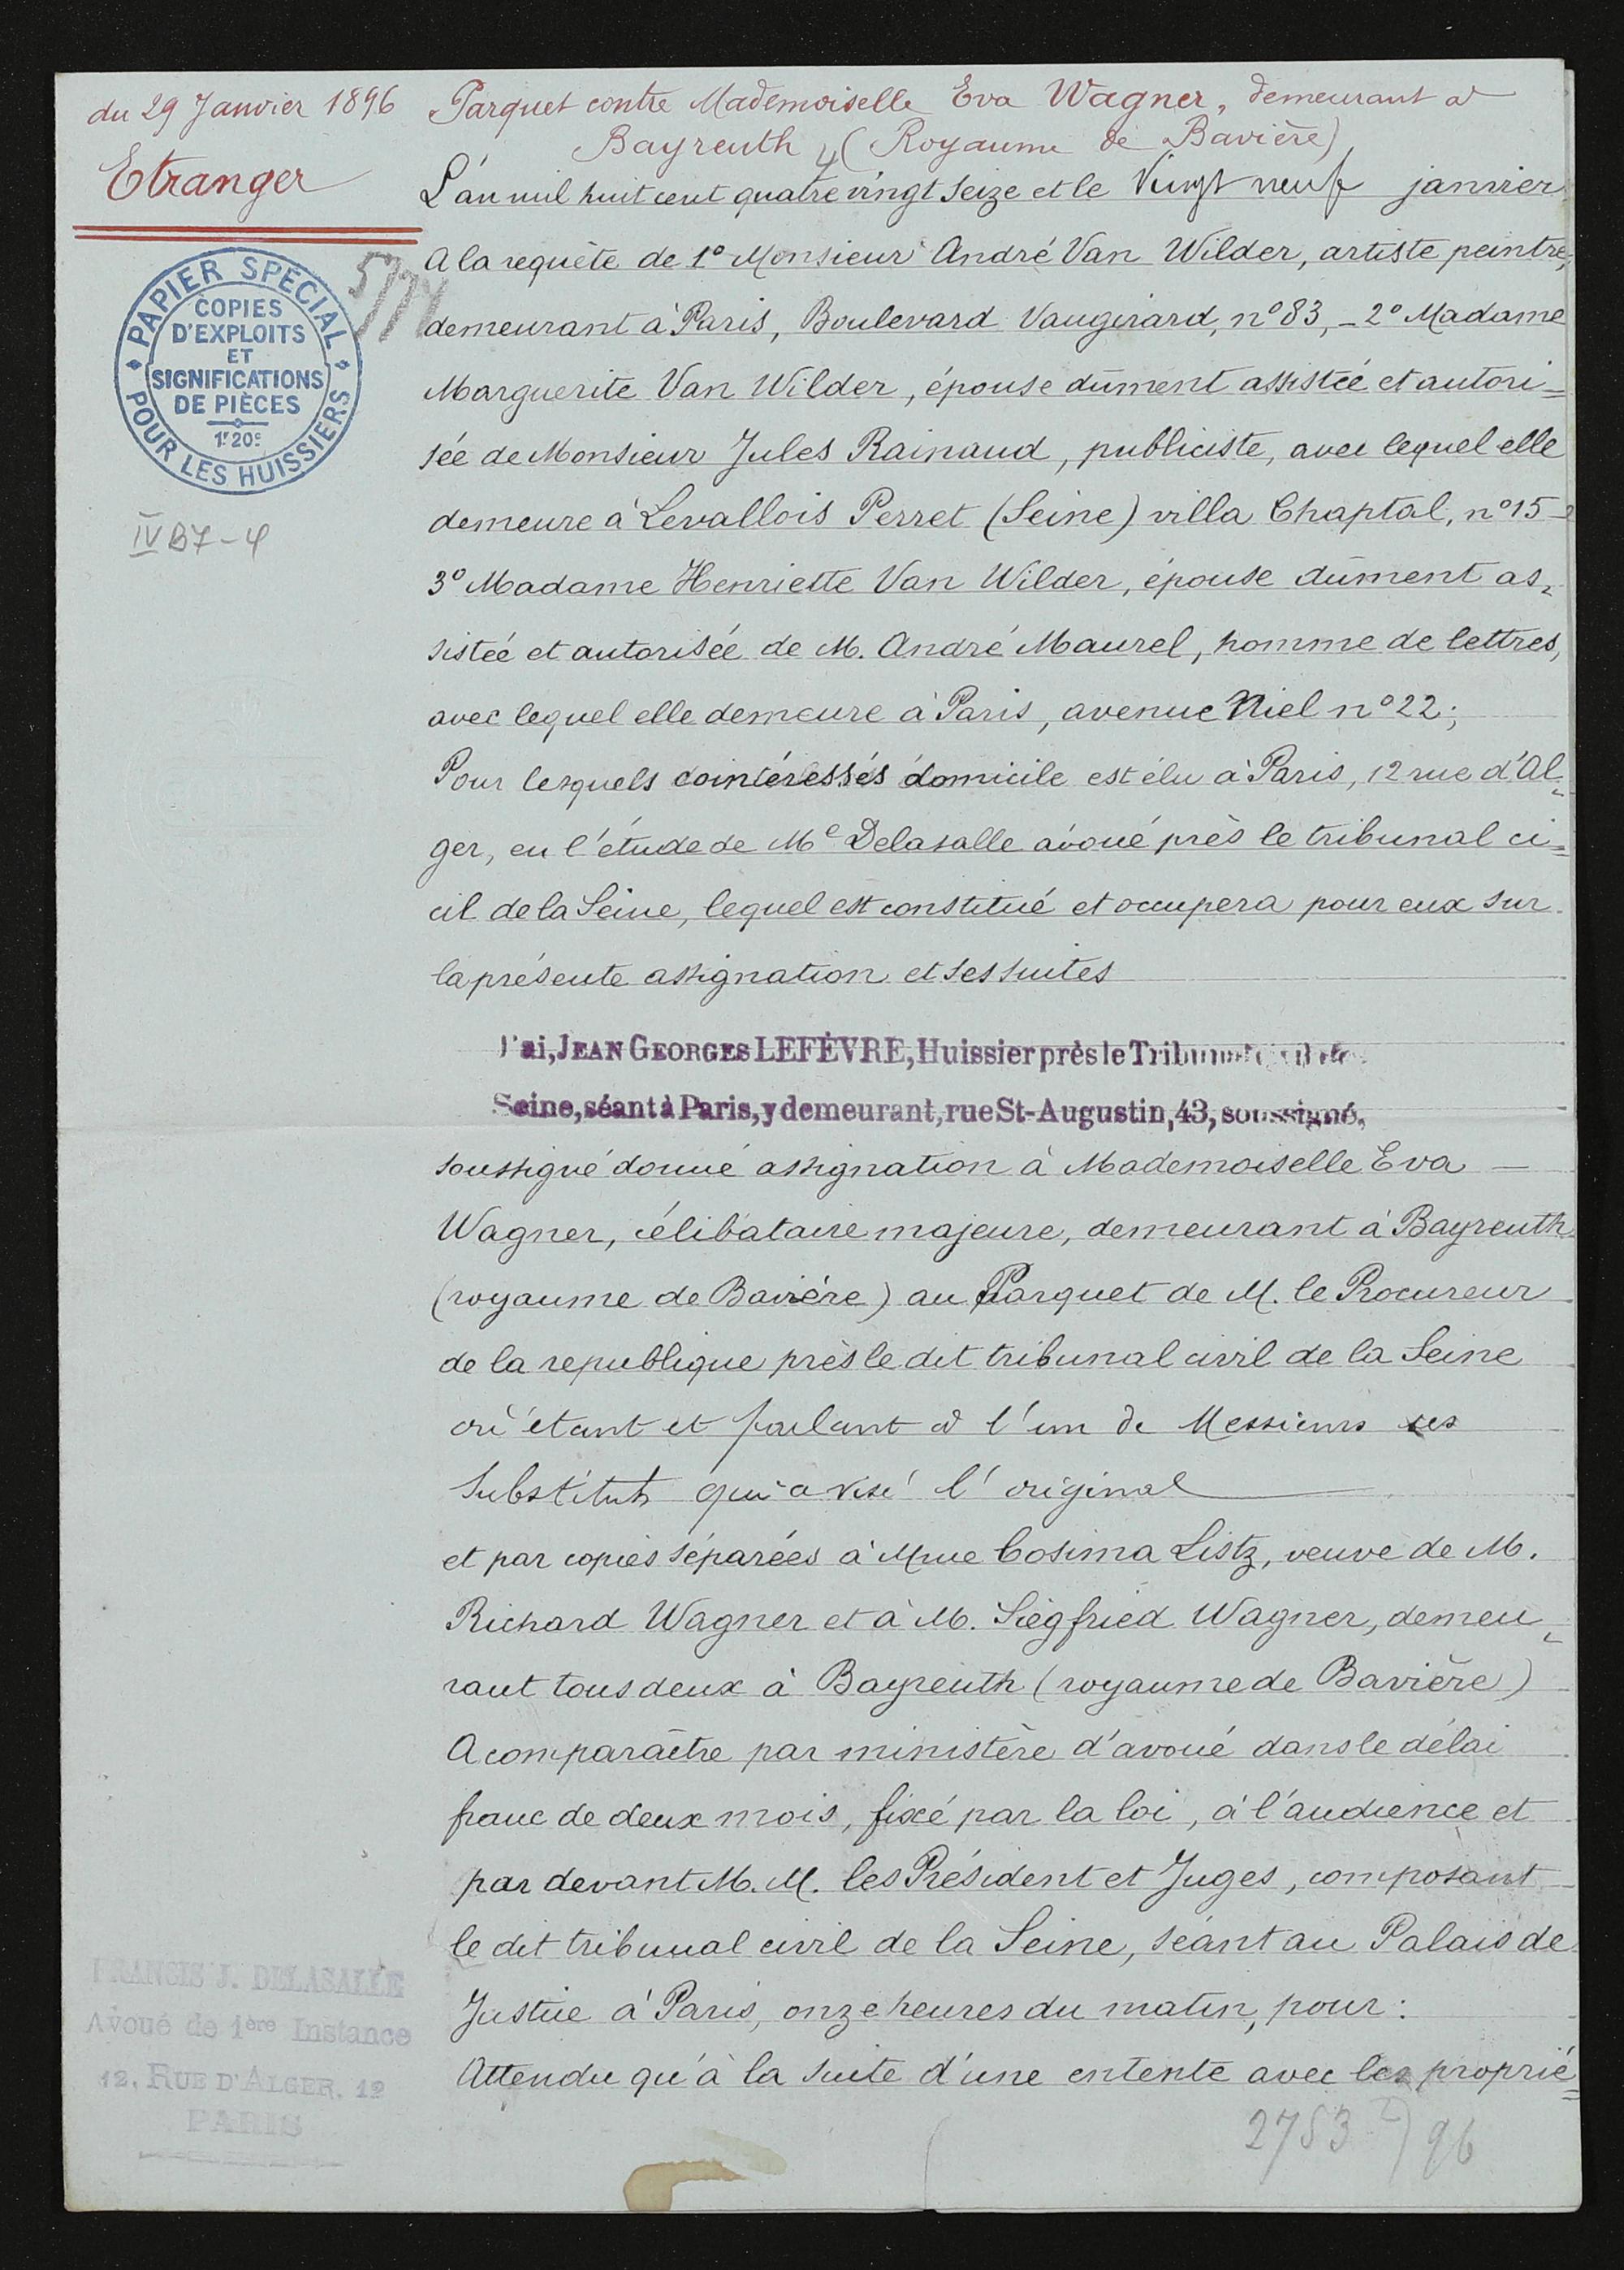 du 29 Janvier 1896
Etranger
Parquet contre Mademoiselle Eva Wagner, demeurant à
Bayreuth (Royaume de Bavière)
4
L'an mil huit cent quatre vingt seize et le Vingt neuf janvier
A la requête de 1° Monsieur André Van Wilder, artiste peintre,
demeurant à Paris, Boulevard Vaugirard, n° 83, - 2° Madame
Marguerite Van Wilder, épouse dûment assistée et autori=
sée de Monsieur Jules Rainaud, publiciste, avec lequel elle
demeure à Levallois Perret (Seine) villa Chaptal, n° 15 -
3° Madame Henriette Van Wilder, épouse dûment as-
sistée et autorisée de M. André Maurel, homme de lettres,
avec lequel elle demeure à Paris, avenue Niel n° 22;
Pour lesquels cointéressés domicile est élu à Paris, 12 rue d'Al-
ger, en l'étude de Me Delasalle avoué près le tribunal ci=
cil de la Seine, lequel est constitué et occupera pour eux sur
la présente assignation et ses suites
J'ai, JEAN GEORGES LEFÈVRE, Huissier près le Tribunal Civil de
Seine, séant à Paris, y demeurant, rue St-Augustin, 43, soussigné,
soussigné donné assignation à Mademoiselle Eva —
Wagner, célibataire majeure, demeurant à Bayreuth
(royaume de Bavière) au Parquet de M. le Procureur
de la republique près le dit tribunal civil de la Seine
où étant et parlant à l'un de Messieurs ses
Substituts qui a visé l'original
et par copies séparées à Mme Cosima Listz, veuve de M.
Richard Wagner et à M. Siegfried Wagner, demeu-
rant tous deux à Bayreuth (royaume de Bavière)
A comparaître par ministère d'avoué dans le délai
franc de deux mois, fixé par la loi, à l'audience et
par devant M. M. les Président et Juges, composant
le dit tribunal civil de la Seine, séant au Palais de
Justice à Paris, onze heures du matin, pour:
Attendu qu'à la suite d'une entente avec les proprié=
PAPIER SPÉCIAL
POUR LES HUISSIERS
COPIES
D'EXPLOITS
ET
SIGNIFICATIONS
DE PIÈCES
1F20c
IV B7-4
FRANCIS J. DELASALLE
Avoué de 1ère Instance
12, RUE D'ALGER, 12
PARIS
2753 96